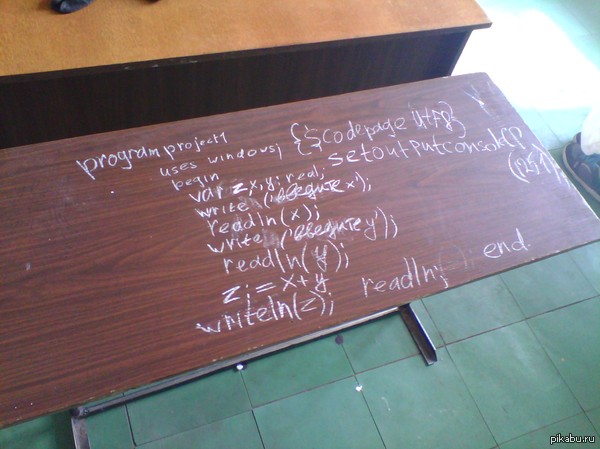 program project1 {$codepage utf8}
uses windows; setoutputconsoleCP
begin (1251);
var z,x,y: real;
write ('введите x');
readln(x);
write ('введите y');
readln(y);
z:=x+y
writeln(z); readln; end.
pikabu.ru